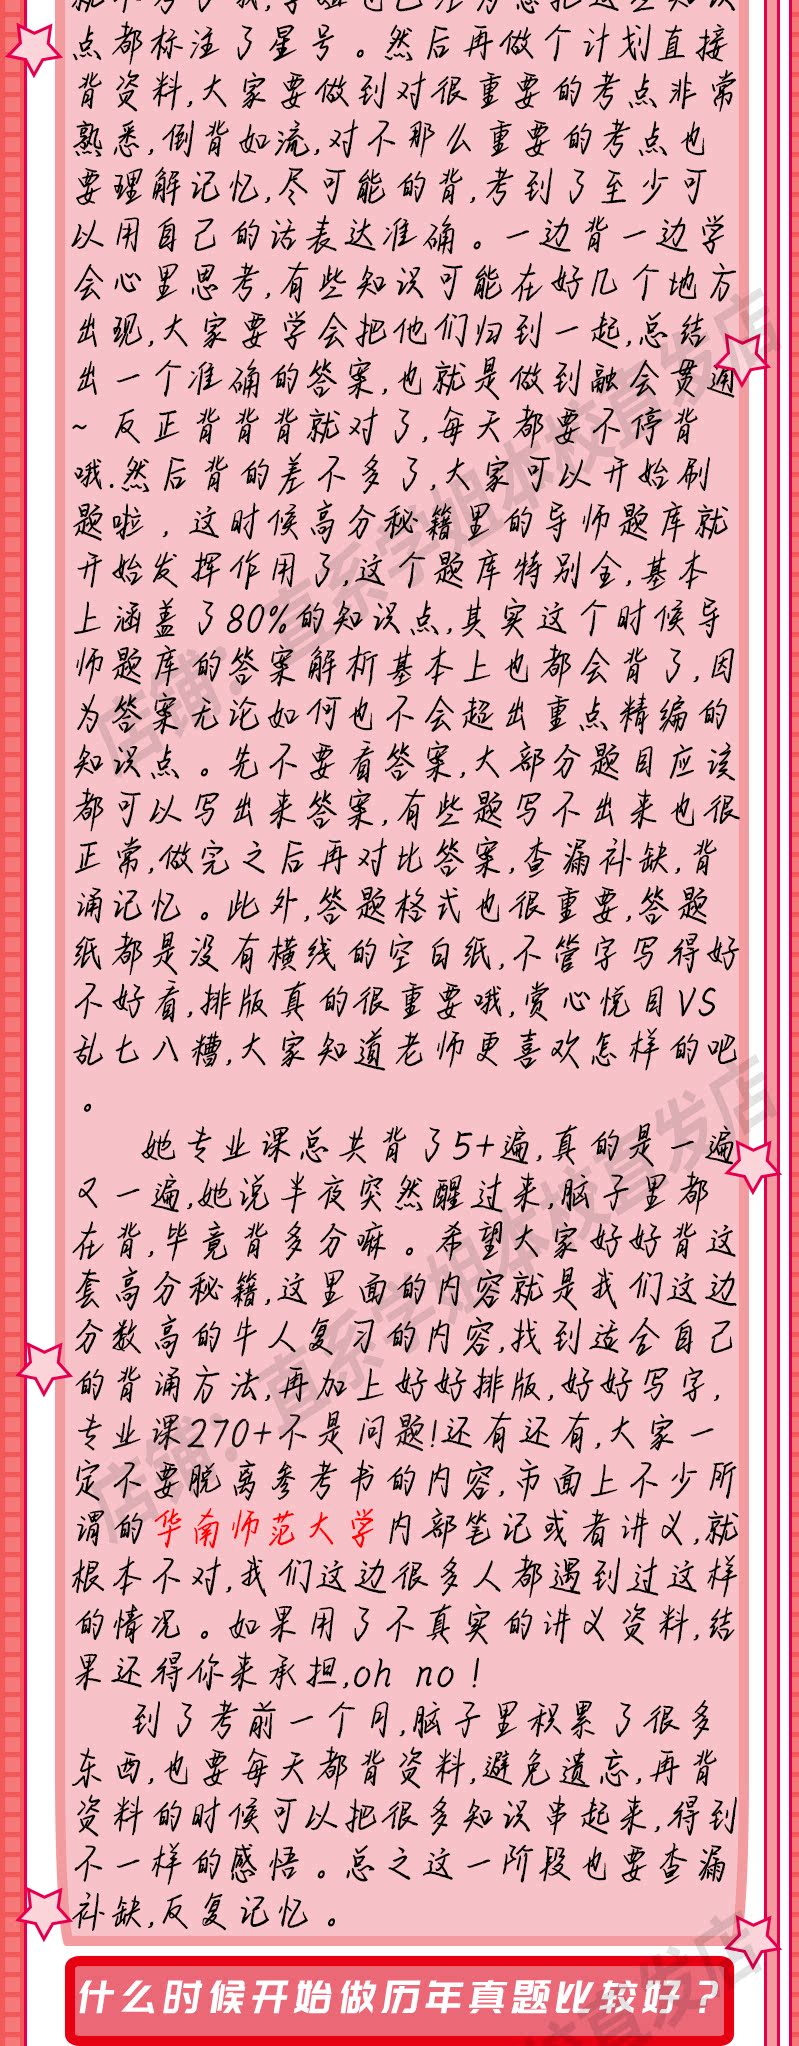 点都标注了星号。然后再做个计划直接
背资料,大家要做到对很重要的考点非常
熟悉,倒背如流,对不那么重要的考点也
要理解记忆,尽可能的背,考到了至少可
以用自己的话表达准确。一边背一边学
会心里思考,有些知识可能在好几个地方
出现,大家要学会把他们归到一起,总结
出一个准确的答案,也就是做到融会贯通
~ 反正背背背就对了,每天都要不停背
哦.然后背的差不多了,大家可以开始刷
题啦，这时候高分秘籍里的导师题库就
开始发挥作用了,这个题库特别金,基本
上涵盖了80%的知识点,其实这个时候导
师题库的答案解析基本上也都会背了,因
为答案无论如何也不会超出重点精编的
知识点。先不要看答案,大部分题目应该
都可以写出来答案,有些题写不出来也很
正常,做完之后再对比答案,查漏补缺,背
诵记忆。此外,答题格式也很重要,答题
纸都是没有横线的空白纸,不管字写得好
不好看,排版真的很重要哦,赏心悦目VS
乱七八糟,大家知道老师更喜欢怎样的吧
。
她专业课总共背了5+遍,真的是一遍
又一遍,她说半夜突然醒过来,脑子里都
在背,毕竟背多分嘛。希望大家好好背这
套高分秘籍,这里面的内容就是我们这边
分数高的牛人复习的内容,找到适合自己
的背诵方法,再加上好好排版,好好写字,
专业课270+不是问题!还有还有,大家一
定不要脱离参考书的内容,市面上不少所
谓的华南师范大学内部笔记或者讲义,就
根本不对,我们这边很多人都遇到过这样
的情况。如果用了不真实的讲义资料,结
果还得你来承担,oh no!
到了考前一个月,脑子里积累了很多
东西,也要每天都背资料,避免遗忘,再背
资料的时候可以把很多知识串起来,得到
不一样的感悟。总之这一阶段也要查漏
补缺,反复记忆。
什么时候开始做历年真题比较好？
店铺：直系学姐本校直发店
店铺：直系学姐本校直发店